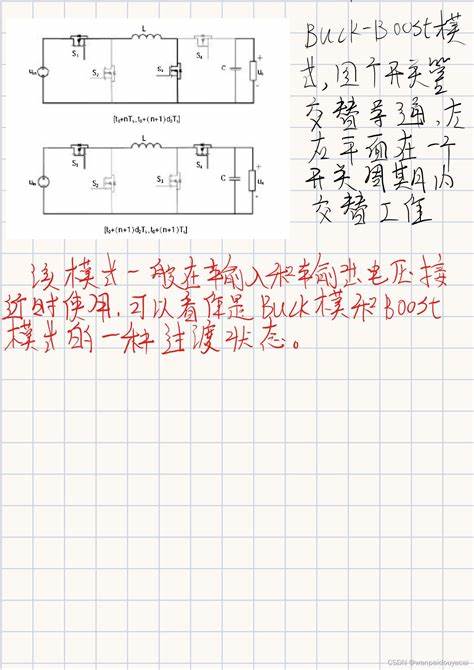 L
S₁
S₂
S₃
S₄
C
[t₀+nTₛ,t₀+(n+1)d₁Tₛ]
L
S₁
S₂
S₃
S₄
C
[t₀+(n+1)d₁Tₛ,t₀+(n+1)Tₛ]
Buck-Boost模
式,四个开关管
交替导通,左
右平面在一个
开关周期内
交替工作
该模式一般在输入和输出电压接
近时使用,可以看作是Buck模和Boost
模式的一种过渡状态。
CSDN @wanpeidouyacai